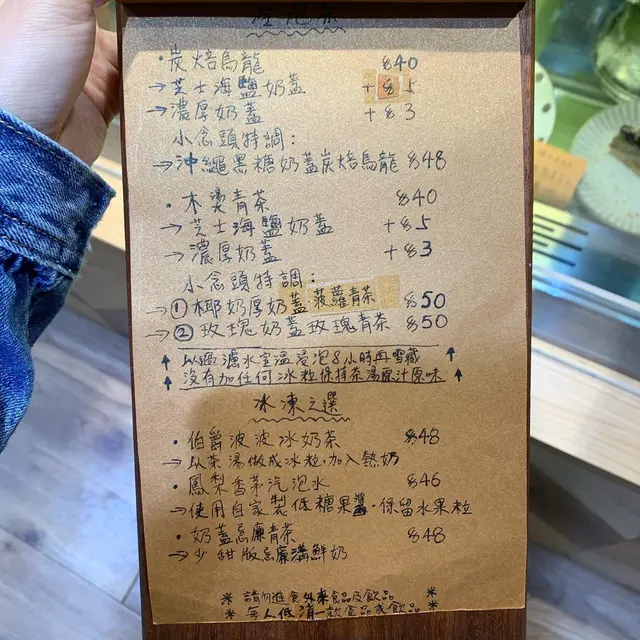 冷泡茶
・炭焙烏龍 $40
→芝士海鹽奶蓋 +$5
→濃厚奶蓋 +$3
小念頭特調：
→沖繩黑糖奶蓋炭焙烏龍 $48
・木燙青茶 $40
→芝士海鹽奶蓋 +$5
→濃厚奶蓋 +$3
小念頭特調：
→①椰奶厚奶蓋・菠蘿青茶 $50
→②玫瑰奶蓋玫瑰青茶 $50
↑以過濾水室溫浸泡8小時再雪藏↑
↑沒有加任何冰粒保持茶湯原汁原味↑
冰凍之選
・伯爵波波冰奶茶 $48
→以茶湯做成冰粒,加入熱奶
・鳳梨香茅汽泡水 $46
→使用自家製低糖果醬・保留水果粒
・奶蓋忌廉青茶 $48
→少甜版忌廉溝鮮奶
＊請勿進食外來食品及飲品＊
＊每人低消一款食品或飲品＊